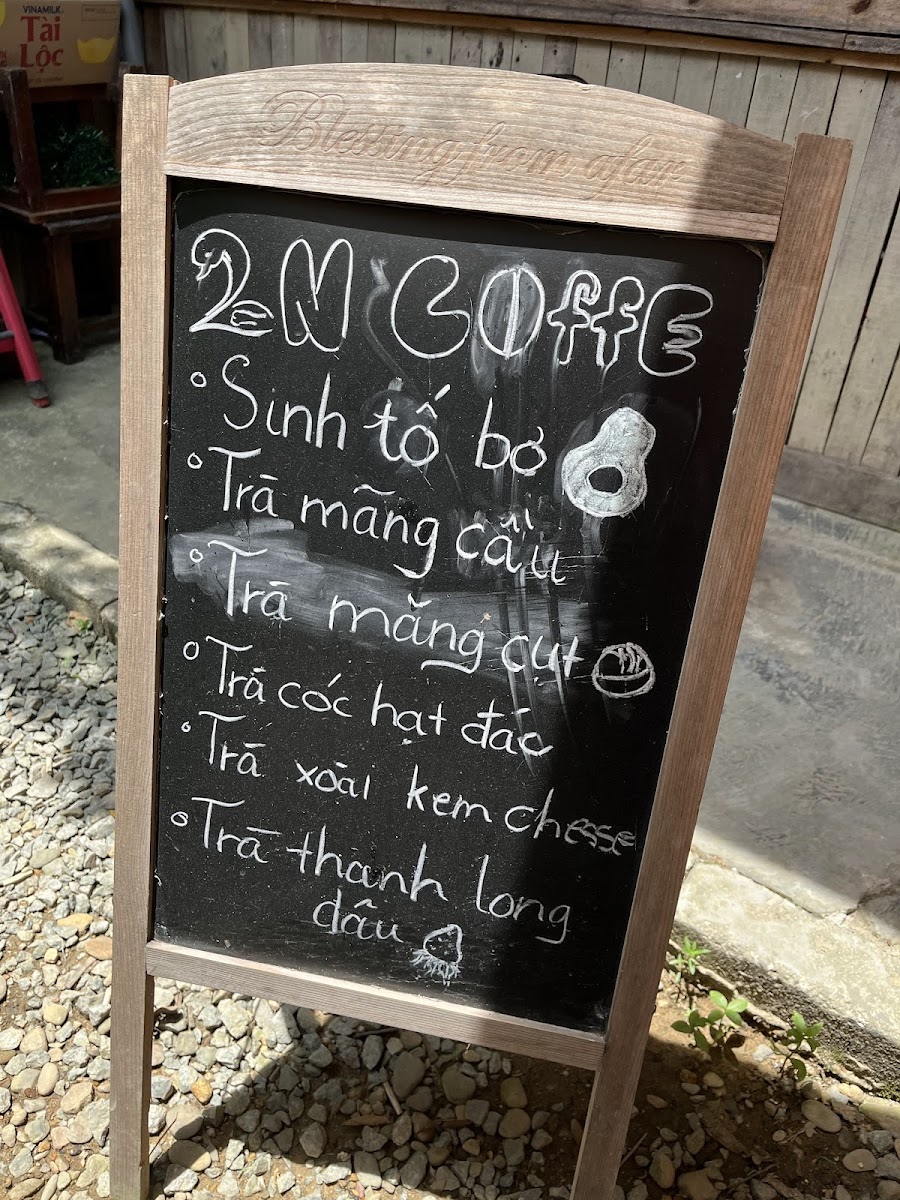 VINAMILK
Tài
Lộc
Blessing from afar
2N COffE
Sinh tố bơ
Trà mãng cầu
Trà măng cụt
Trà cóc hạt đác
Trà xoài kem chesse
Trà thanh long
dâu